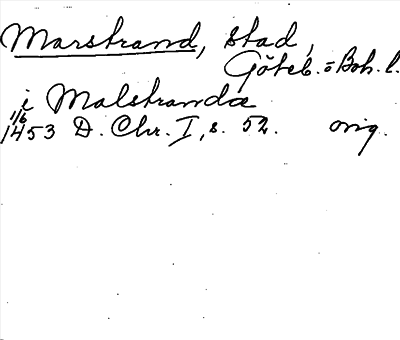 Marstrand, stad,
Göteb. = Boh. l.
i Malstranda
1/6
1453 D. Chr. I, s. 52. orig.